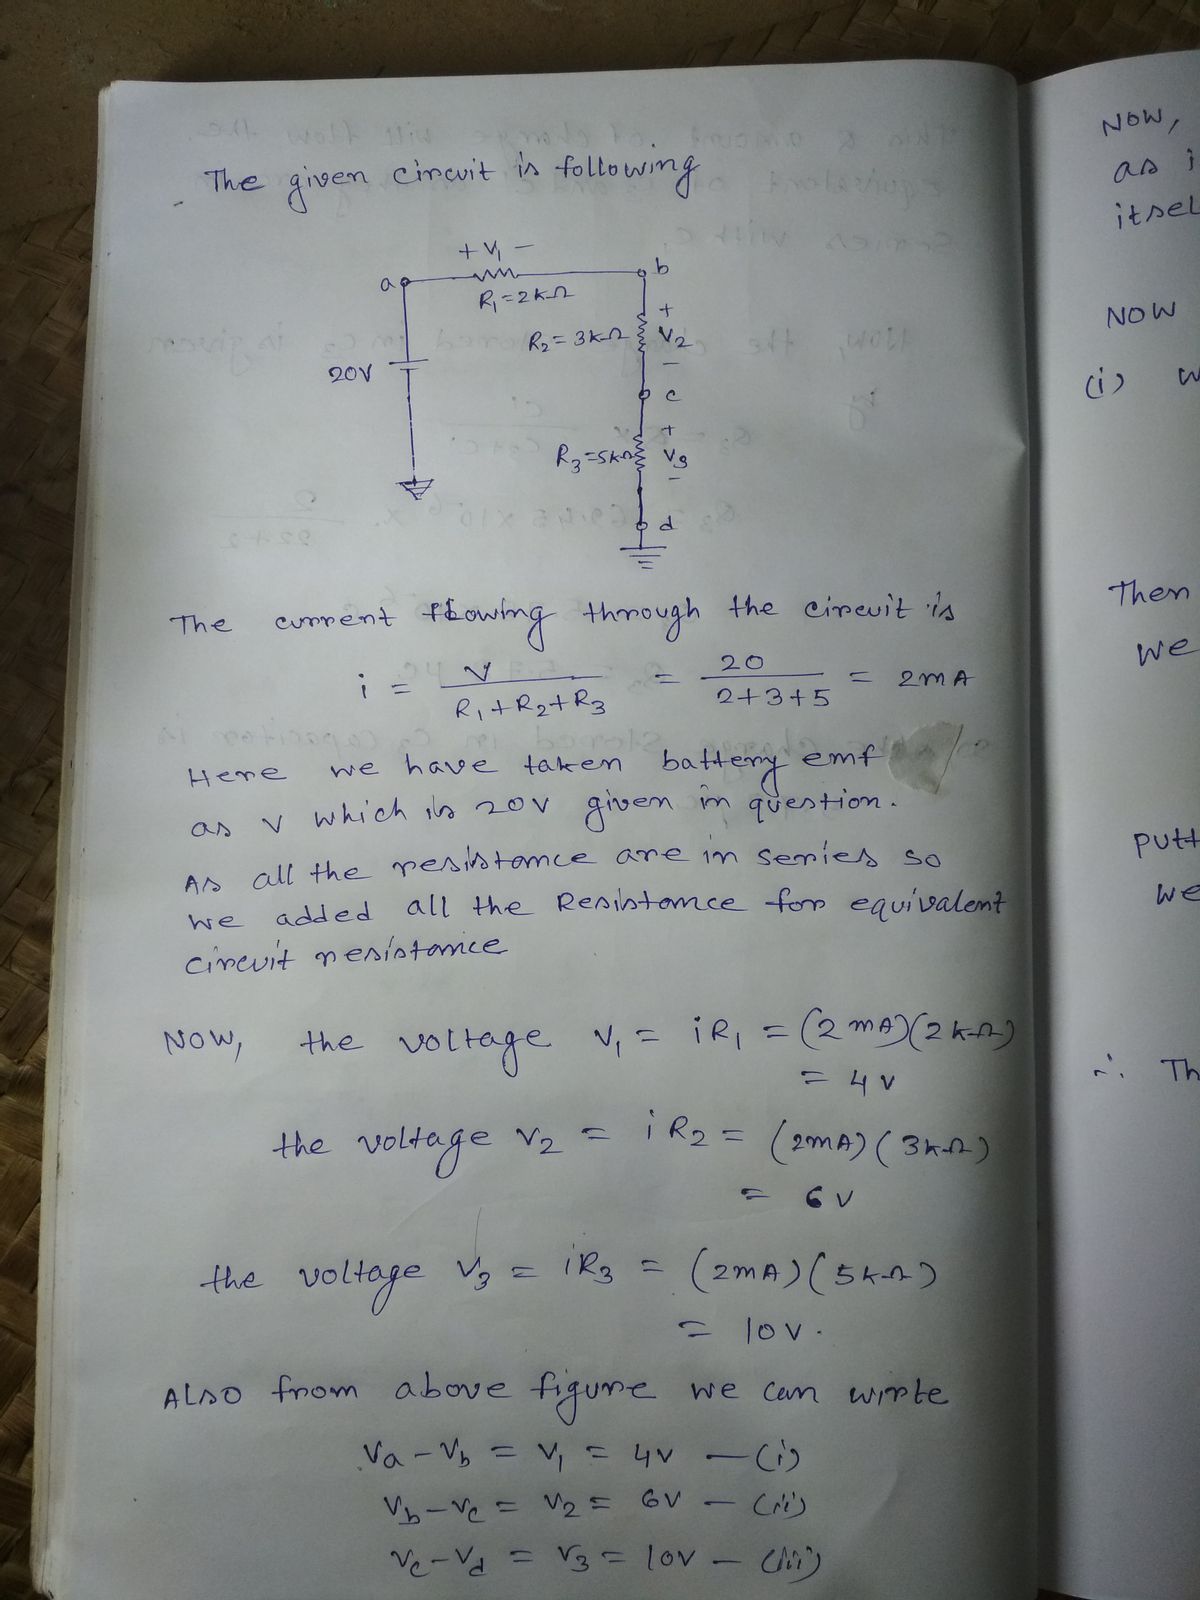 The given circuit is following
+ V1 -
a
b
R1 = 2kΩ
+
R2 = 3kΩ
V2
-
20V
c
+
R3 = 5kΩ
V3
-
d
The current flowing through the circuit is
i = V / R1 + R2 + R3 = 20 / 2+3+5 = 2mA
Here we have taken battery emf
as V which is 20V given in question.
As all the resistance are in series so
we added all the Resistance for equivalent
circuit resistance
NOW, the voltage V1 = iR1 = (2mA)(2kΩ)
= 4V
the voltage V2 = iR2 = (2mA)(3kΩ)
= 6V
the voltage V3 = iR3 = (2mA)(5kΩ)
= 10V.
Also from above figure we can wirte
Va - Vb = V1 = 4V — (i)
Vb - Vc = V2 = 6V — (ii)
Vc - Vd = V3 = 10V — (iii)
NOW,
as i
itsel
NOW
(i) w
Then
we
putt
we
∴ Th